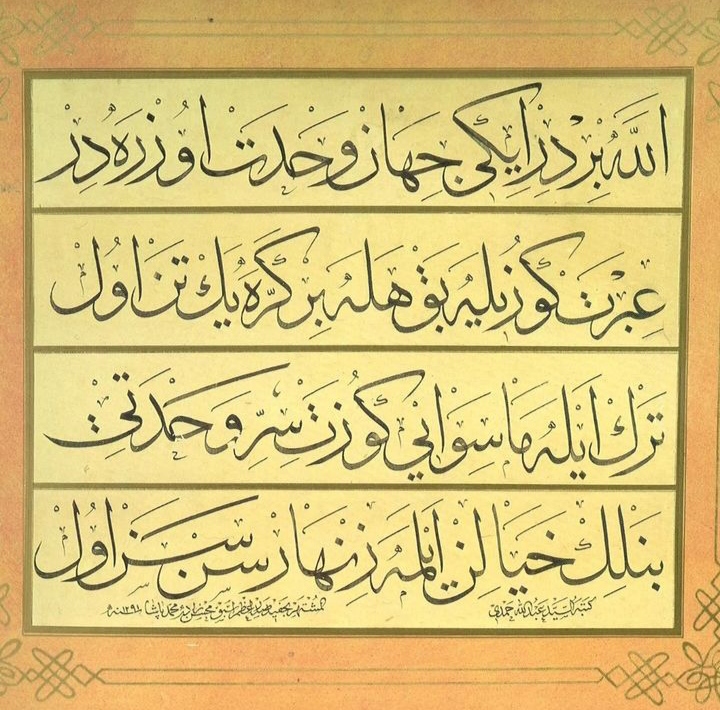 اللّه بردر ایكی جهان وحدت اوزره در
عبرت كوزیله بق هله بر كرّه یك تن اول
ترك ایله ماسوایی كوزت سرّ وحدتی
بنلك خیالن ایلمه زنهار سن سن اول
كتبه السید عبد اللّه حمدی
محمد پاشا ١٢٩٤ سنه